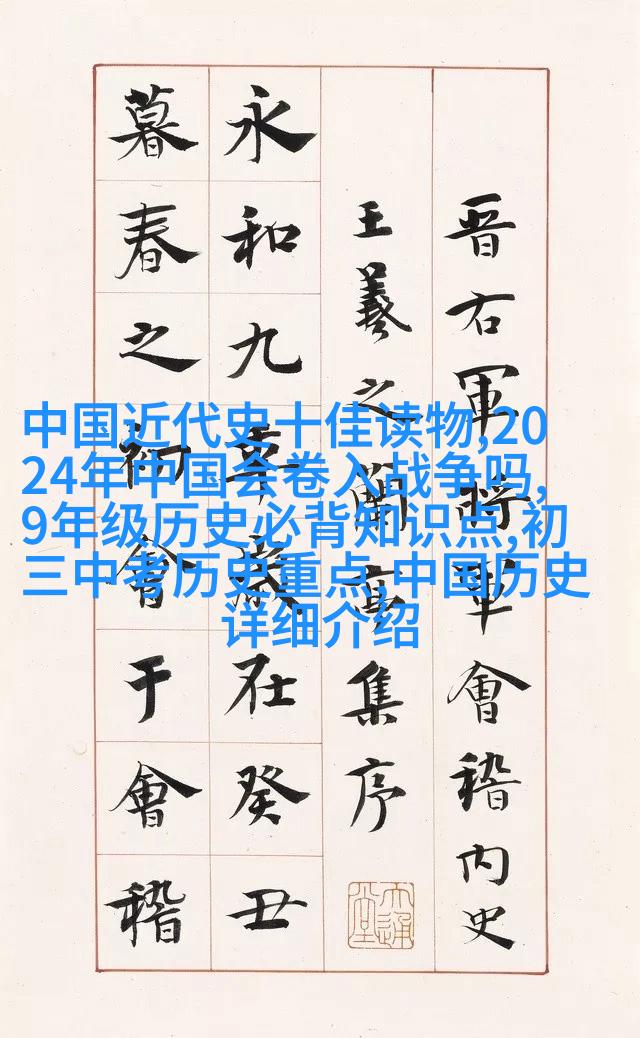 晋右軍將軍會稽内史
王羲之蘭亭集序
永和九年歲在癸丑
暮春之初會于會稽
中国近代史十佳读物,20
24年中国会卷入战争吗,
9年级历史必背知识点,初
三中考历史重点,中国历史
详细介绍